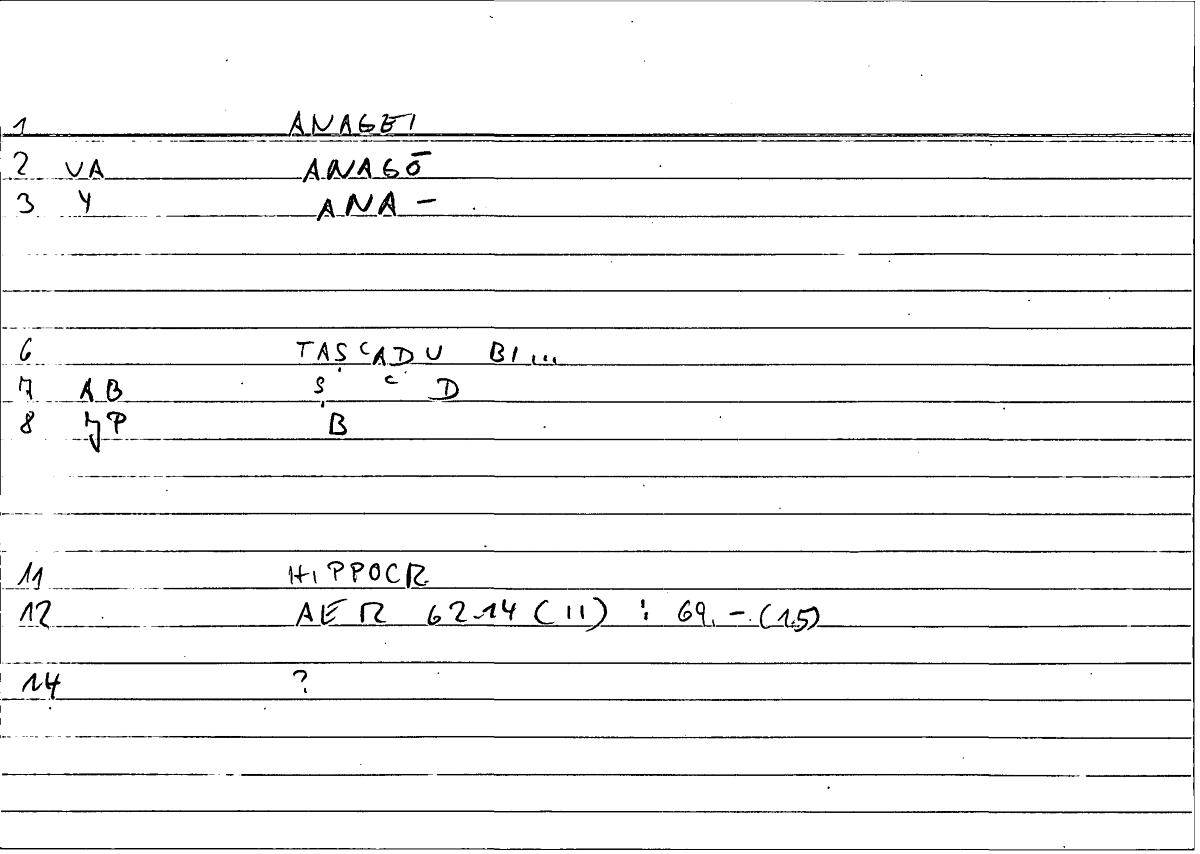 1 ANAGEI
2 VA ANAGŌ
3 Y ANA -
6 TAṢ ʿADU BI...
7 AB Ṣ ʿ D
8 P Ḅ
11 HIPPOCR
12 AER 62.14 (11) : 69.- (15)
14 ?